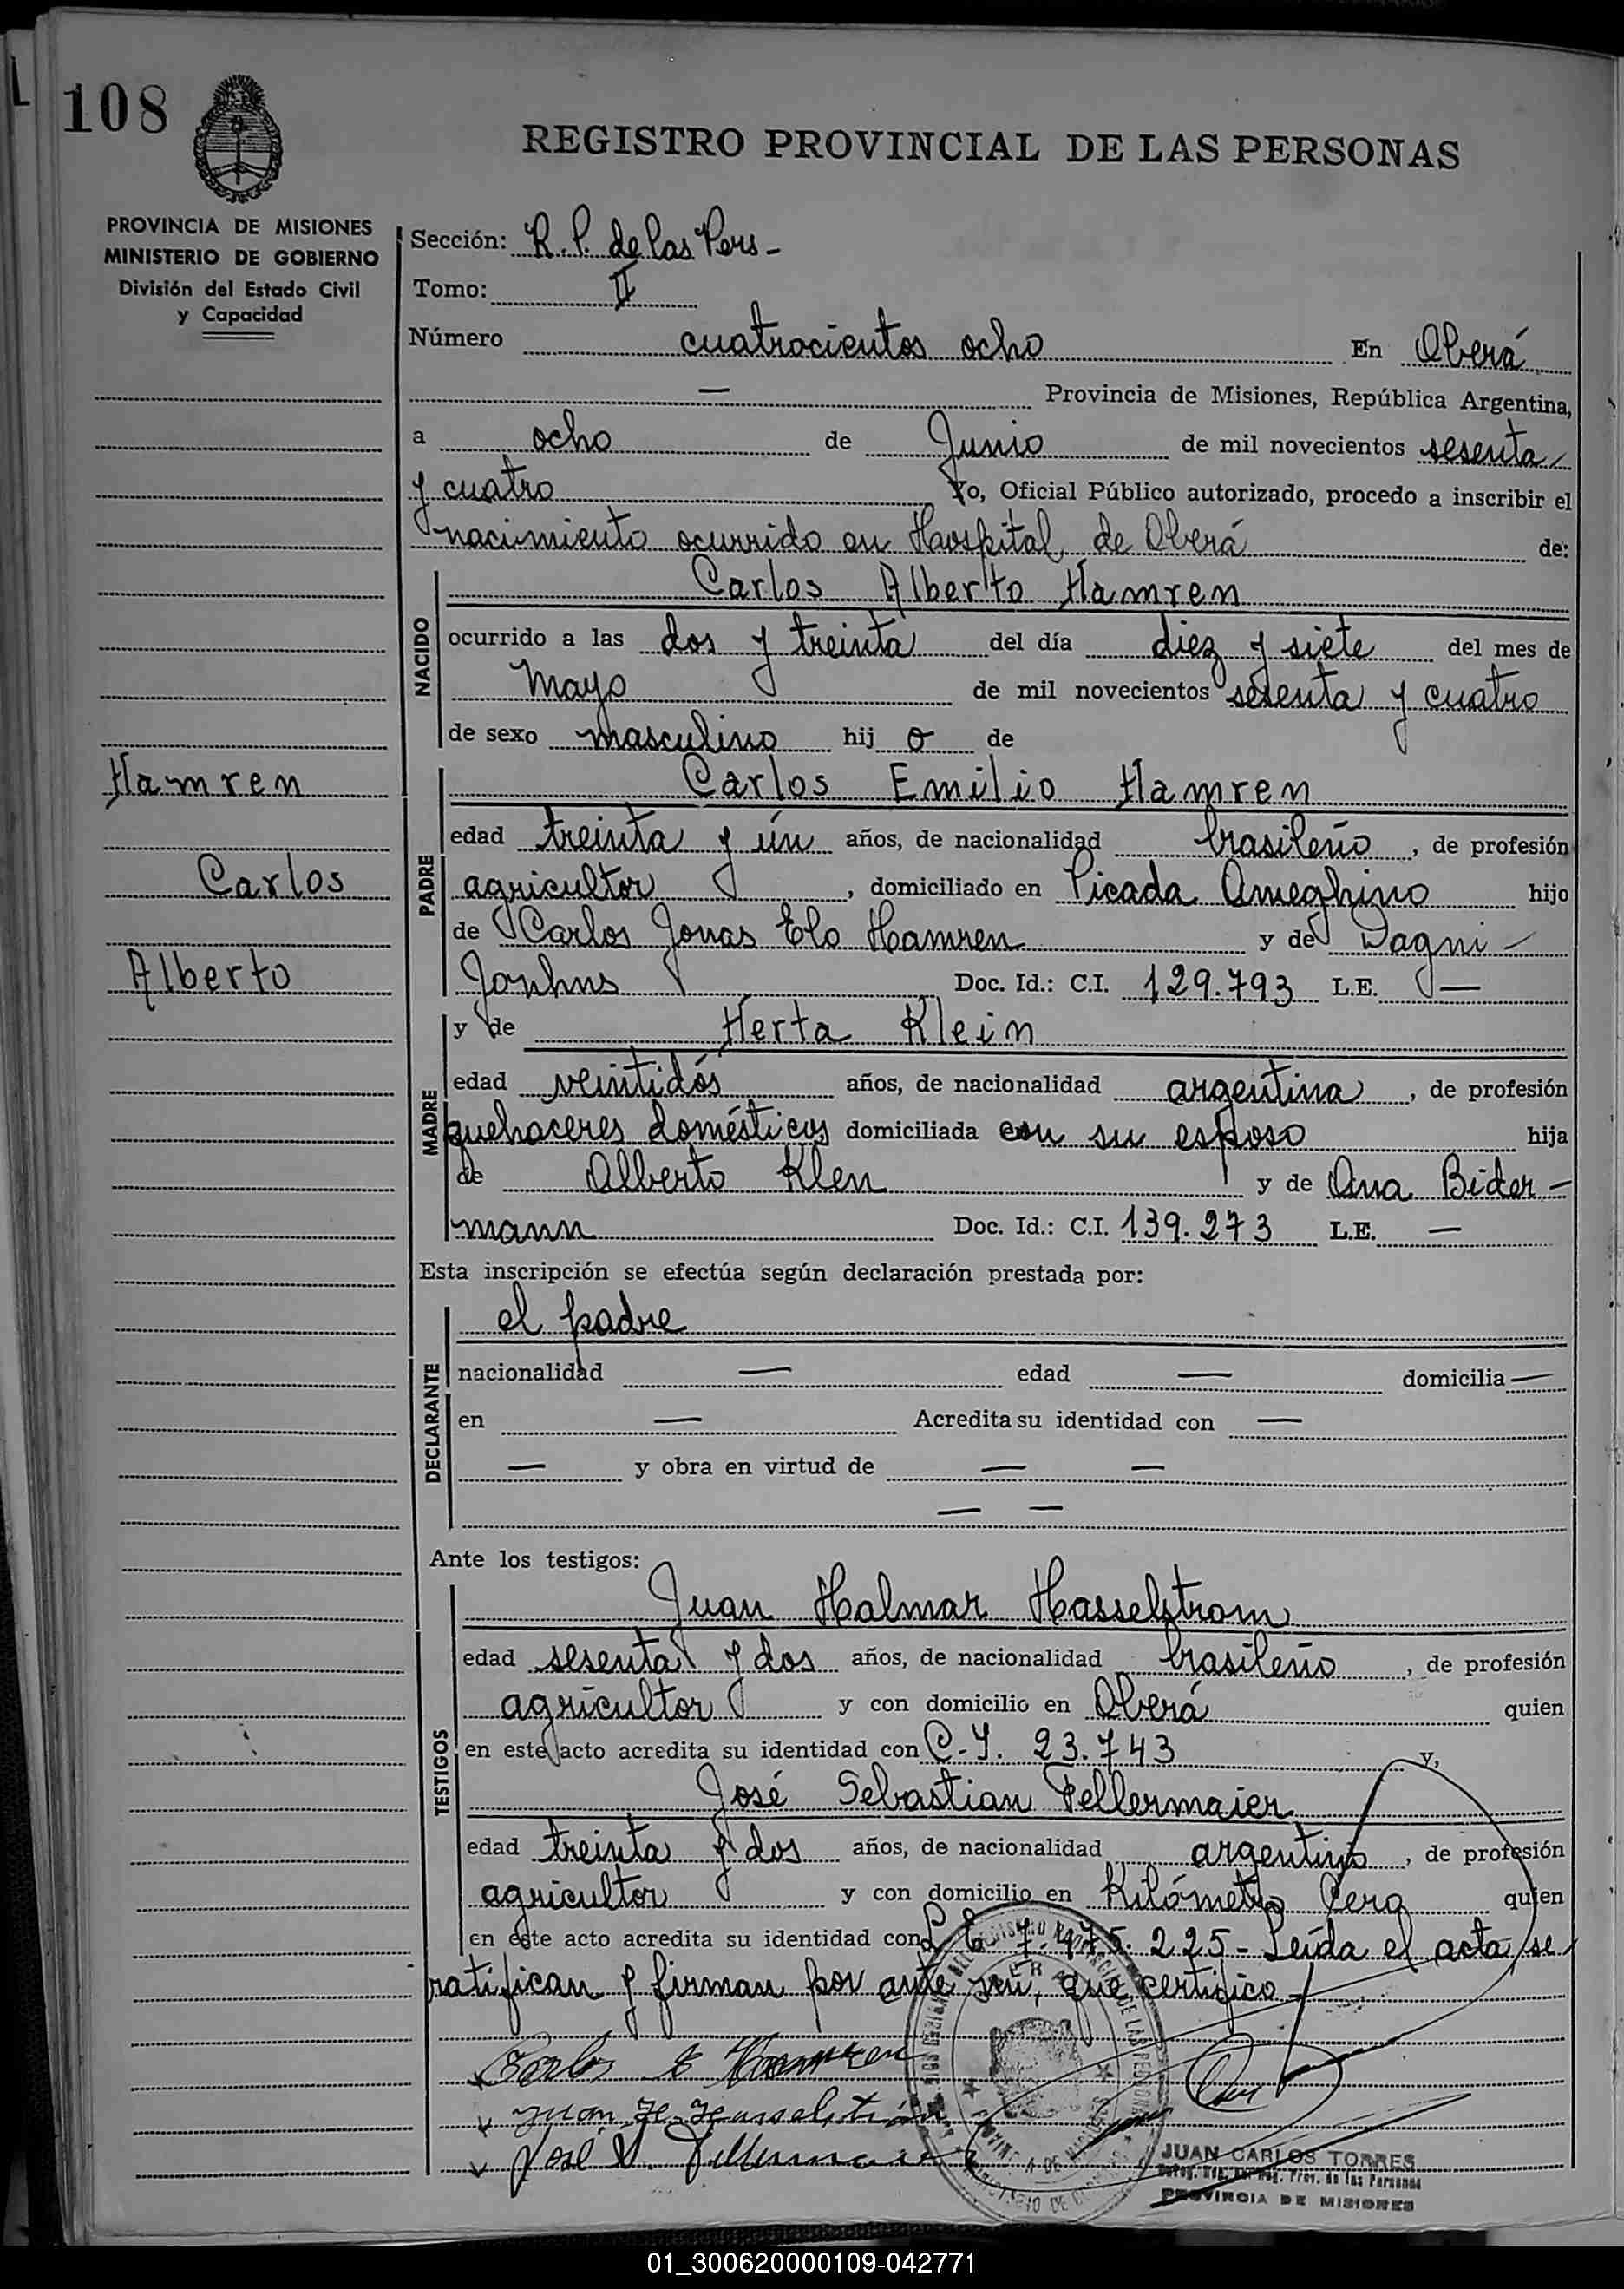 108
REGISTRO PROVINCIAL DE LAS PERSONAS
PROVINCIA DE MISIONES
MINISTERIO DE GOBIERNO
División del Estado Civil
y Capacidad
Sección: R. P. de las Pers-
Tomo: II
Número cuatrocientos ocho En Oberá
— Provincia de Misiones, República Argentina,
a ocho de Junio de mil novecientos sesenta
y cuatro Yo, Oficial Público autorizado, procedo a inscribir el
nacimiento ocurrido en Hospital de Oberá de:
NACIDO
Carlos Alberto Hamren
ocurrido a las dos y treinta del día diez y siete del mes de
mayo de mil novecientos sesenta y cuatro
de sexo masculino hij o de
Hamren
Carlos
Alberto
PADRE
Carlos Emilio Hamren
edad treinta y ún años, de nacionalidad brasileño, de profesión
agricultor, domiciliado en Picada Ameghino hijo
de Carlos Jonas Elo Hamren y de Dagni —
Jonhns Doc. Id.: C.I. 129.793 L.E. —
MADRE
y de Herta Klein
edad veintidós años, de nacionalidad argentina, de profesión
quehaceres domésticos domiciliada con su esposo hija
de Alberto Klen y de Ana Bider-
mann Doc. Id.: C.I. 139.273 L.E. —
Esta inscripción se efectúa según declaración prestada por:
DECLARANTE
el padre
nacionalidad — edad — domicilia —
en — Acredita su identidad con —
— y obra en virtud de — —
— —
Ante los testigos:
TESTIGOS
Juan Halmar Hasselstrom
edad sesenta y dos años, de nacionalidad brasileño, de profesión
agricultor y con domicilio en Oberá quien
en este acto acredita su identidad con C.I. 23.743 y,
José Sebastian Fellermaier
edad treinta y dos años, de nacionalidad argentino, de profesión
agricultor y con domicilio en Kilómetro Cero quien
en este acto acredita su identidad con L E 7.475.225- Leída el acta se
ratifican y firman por ante mi, que certifico-
Carlos E Hamren
Juan H. Hasselström
José S. Fellermaier
JUAN CARLOS TORRES
PROVINCIA DE MISIONES
01_300620000109-042771